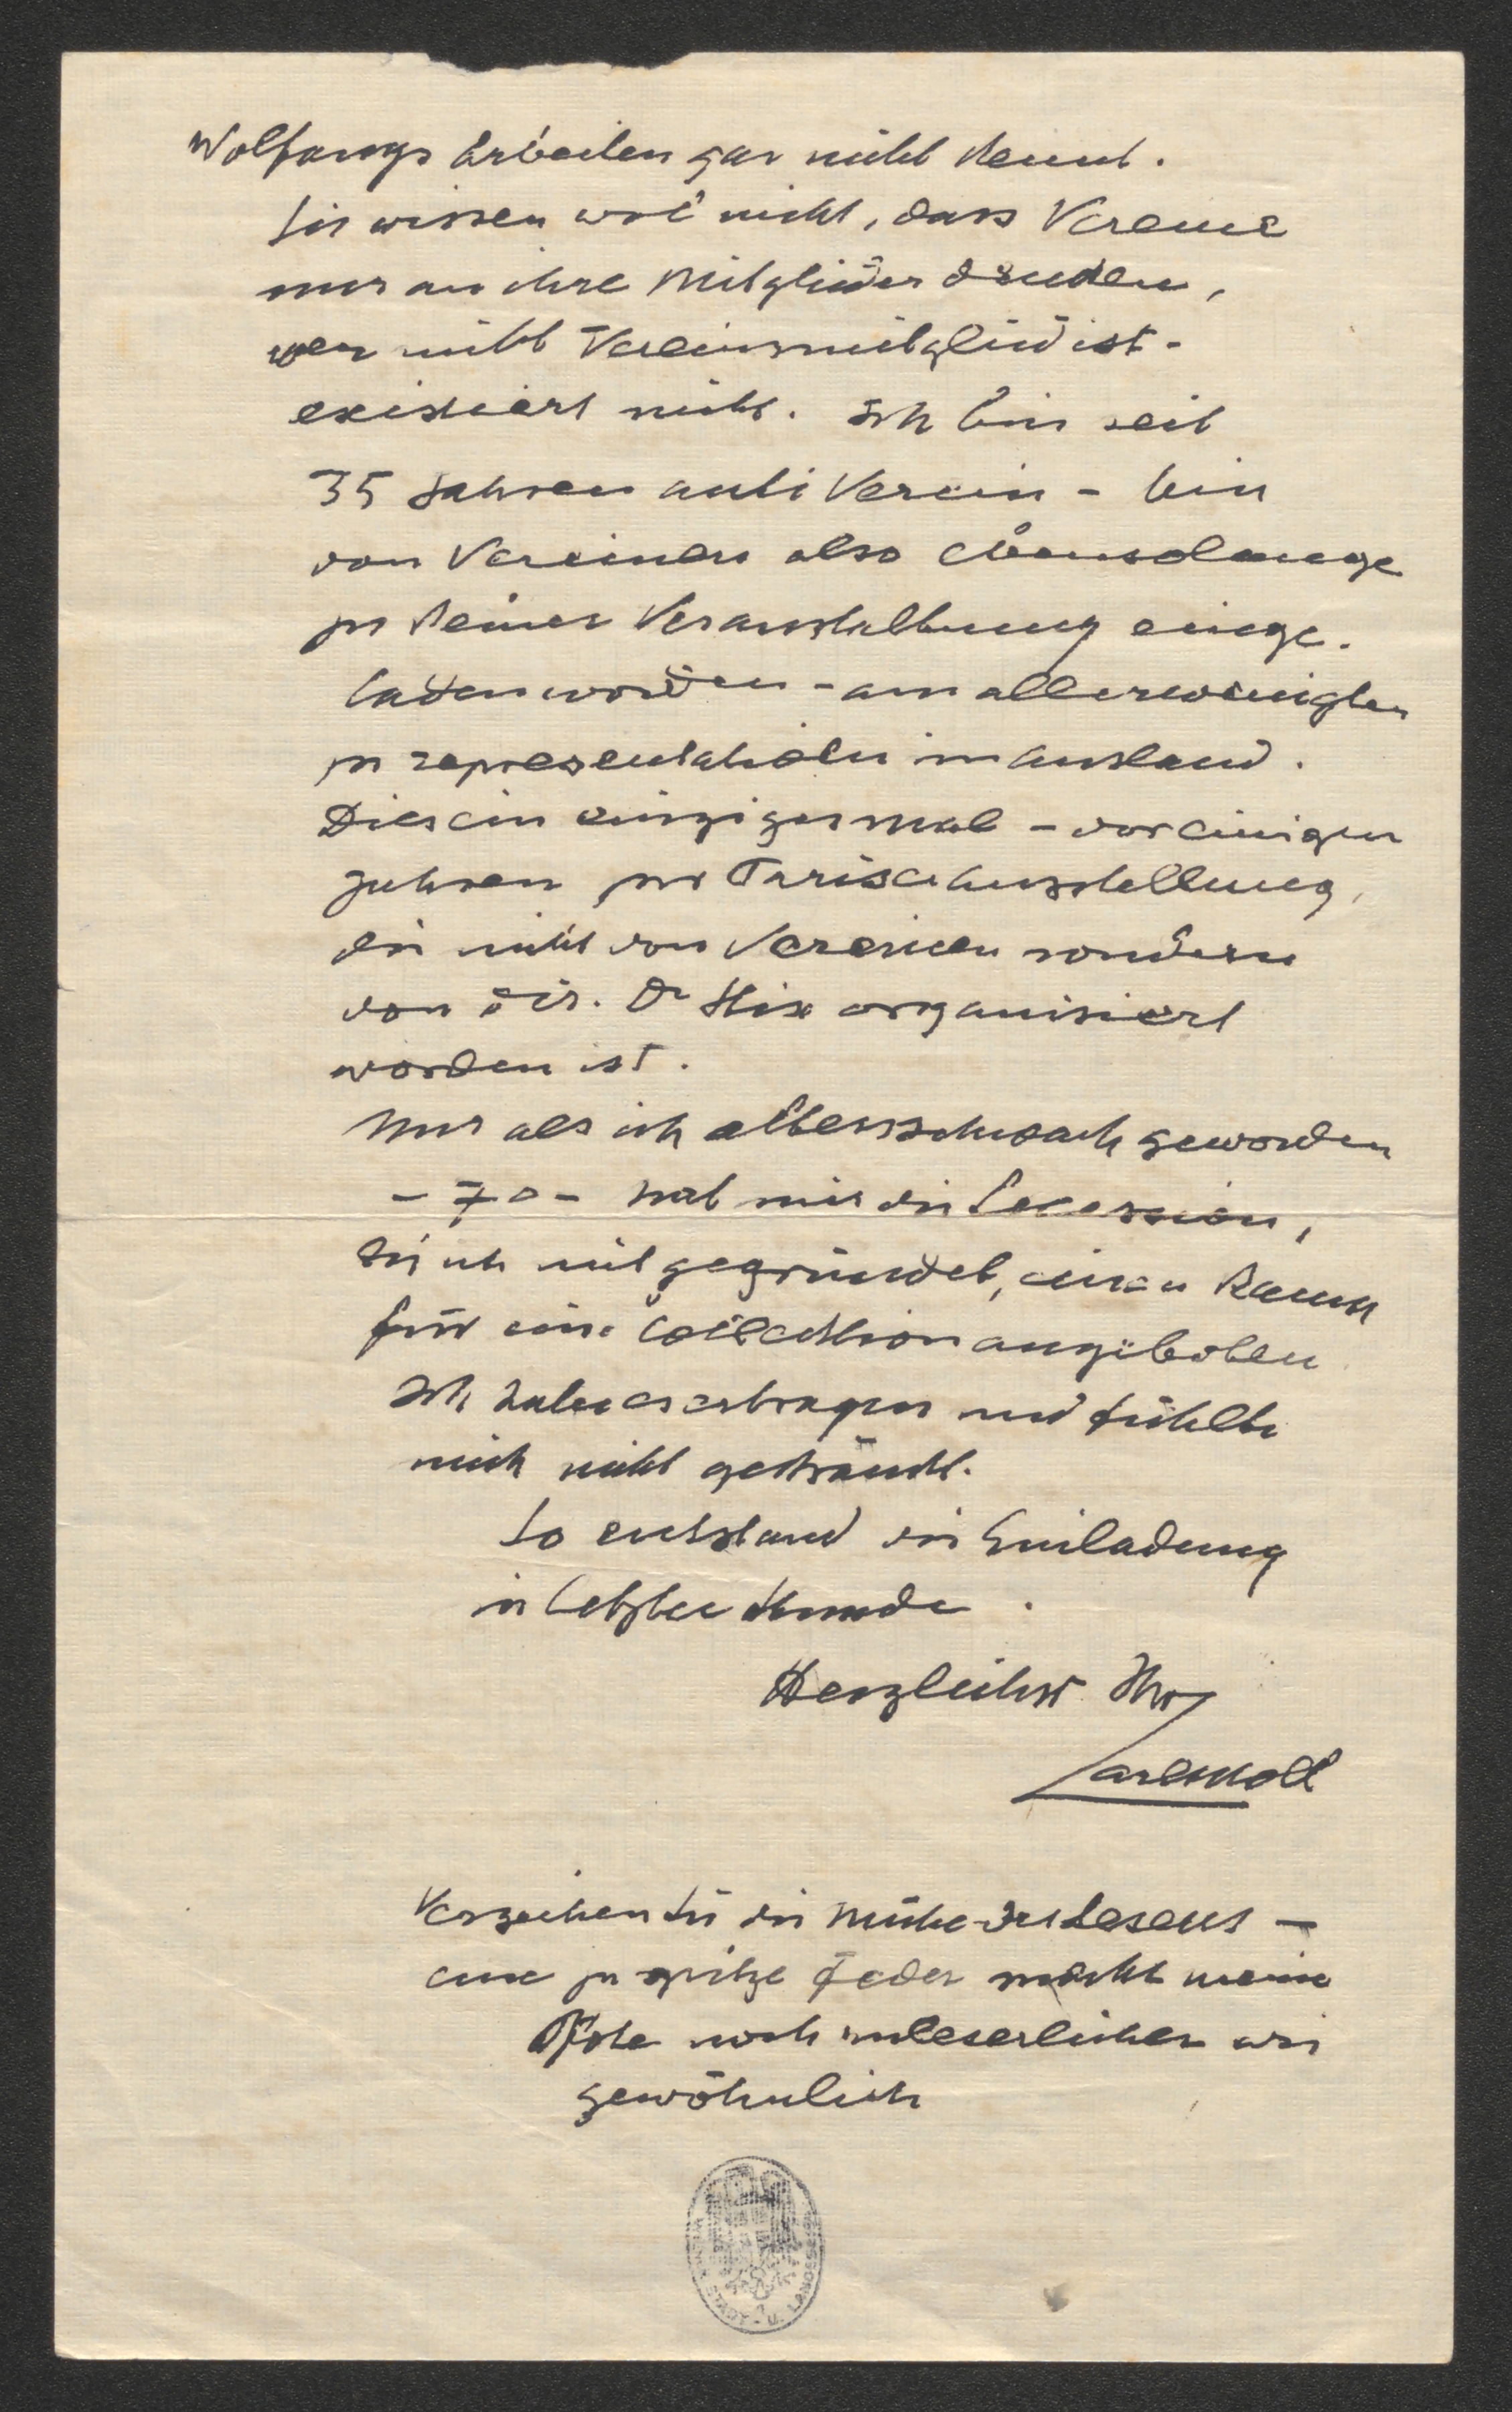 Wolfgangs Arbeiten gar nicht kennt.
Sie wissen wol nicht, dass Vereine
nur an ihre Mitglieder denken,
wer nicht Vereinsmitglied ist -
existiert nicht. Ich bin seit
35 Jahren anti Verein - bin
von Vereinen also ebensolange
zu keiner Veranstaltung einge-
laden worden - am allerwenigsten
zu representationen im Ausland.
Dies ein einziges mal - vor einigen
Jahren zur Pariser Ausstellung,
die nicht von Vereinen sondern
von Dir. Dr organisiert
worden ist.
Nur als ich altersschwach geworden
- 70 - hat mir die Secession,
die ich mitgegründet, einen Raum
für eine Collection angeboten
Ich habe es ertragen und fühlte
mich nicht gekränkt.
So entstand die Einladung
in letzter Stunde.
Herzlichst Ihr
Carl Moll
Verzeihen Sie die Mühe des Lesens -
eine zu spitze Feder macht meine
Pfote noch unleserlicher wie
gewöhnlich
STADT- U. LANDES